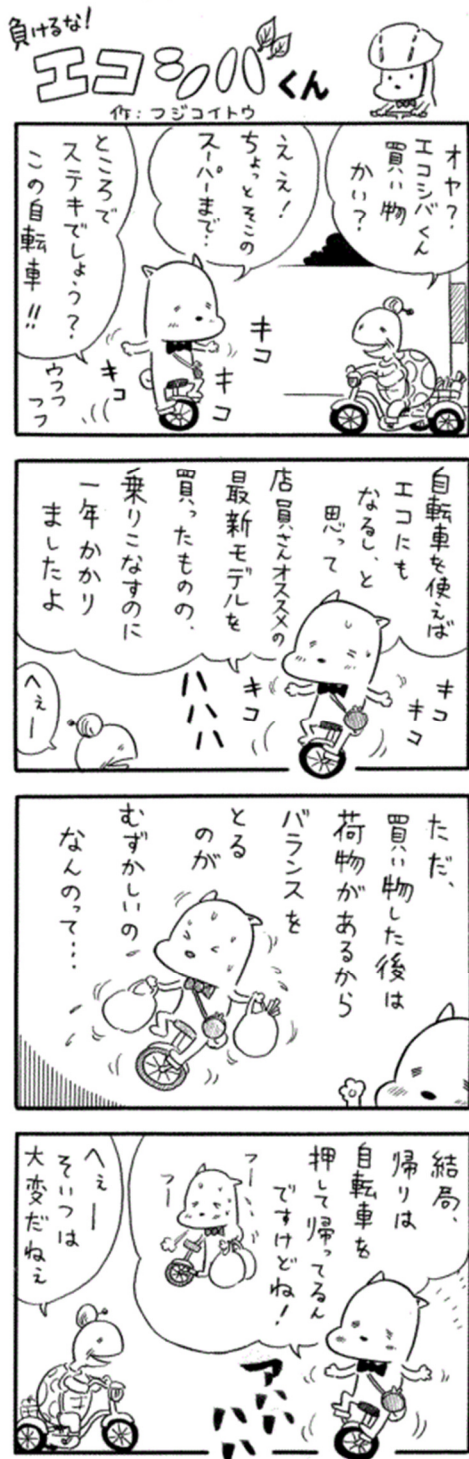 負けるな!
エコシバくん
作:フジコイトウ
オヤ?
エコシバくん
買い物
かい?
ええ!
ちょっとそこの
スーパーまで…
ところで
ステキでしょう?
この自転車!!
キコ
キコ
キコ
ウフフ
フフ
自転車を使えば
エコにも
なるし、と
思って
店員さんオススメの
最新モデルを
買ったものの、
乗りこなすのに
一年かかり
ましたよ
キコ
キコ
キコ
ハハハ
へぇー
ただ、
買い物した後は
荷物があるから
バランスを
とる
のが
むずかしいの
なんのって…
結局、
帰りは
自転車を
押して帰ってるん
ですけどね!
フー
フー
アハハハハ
へぇー
そいつは
大変だねぇ